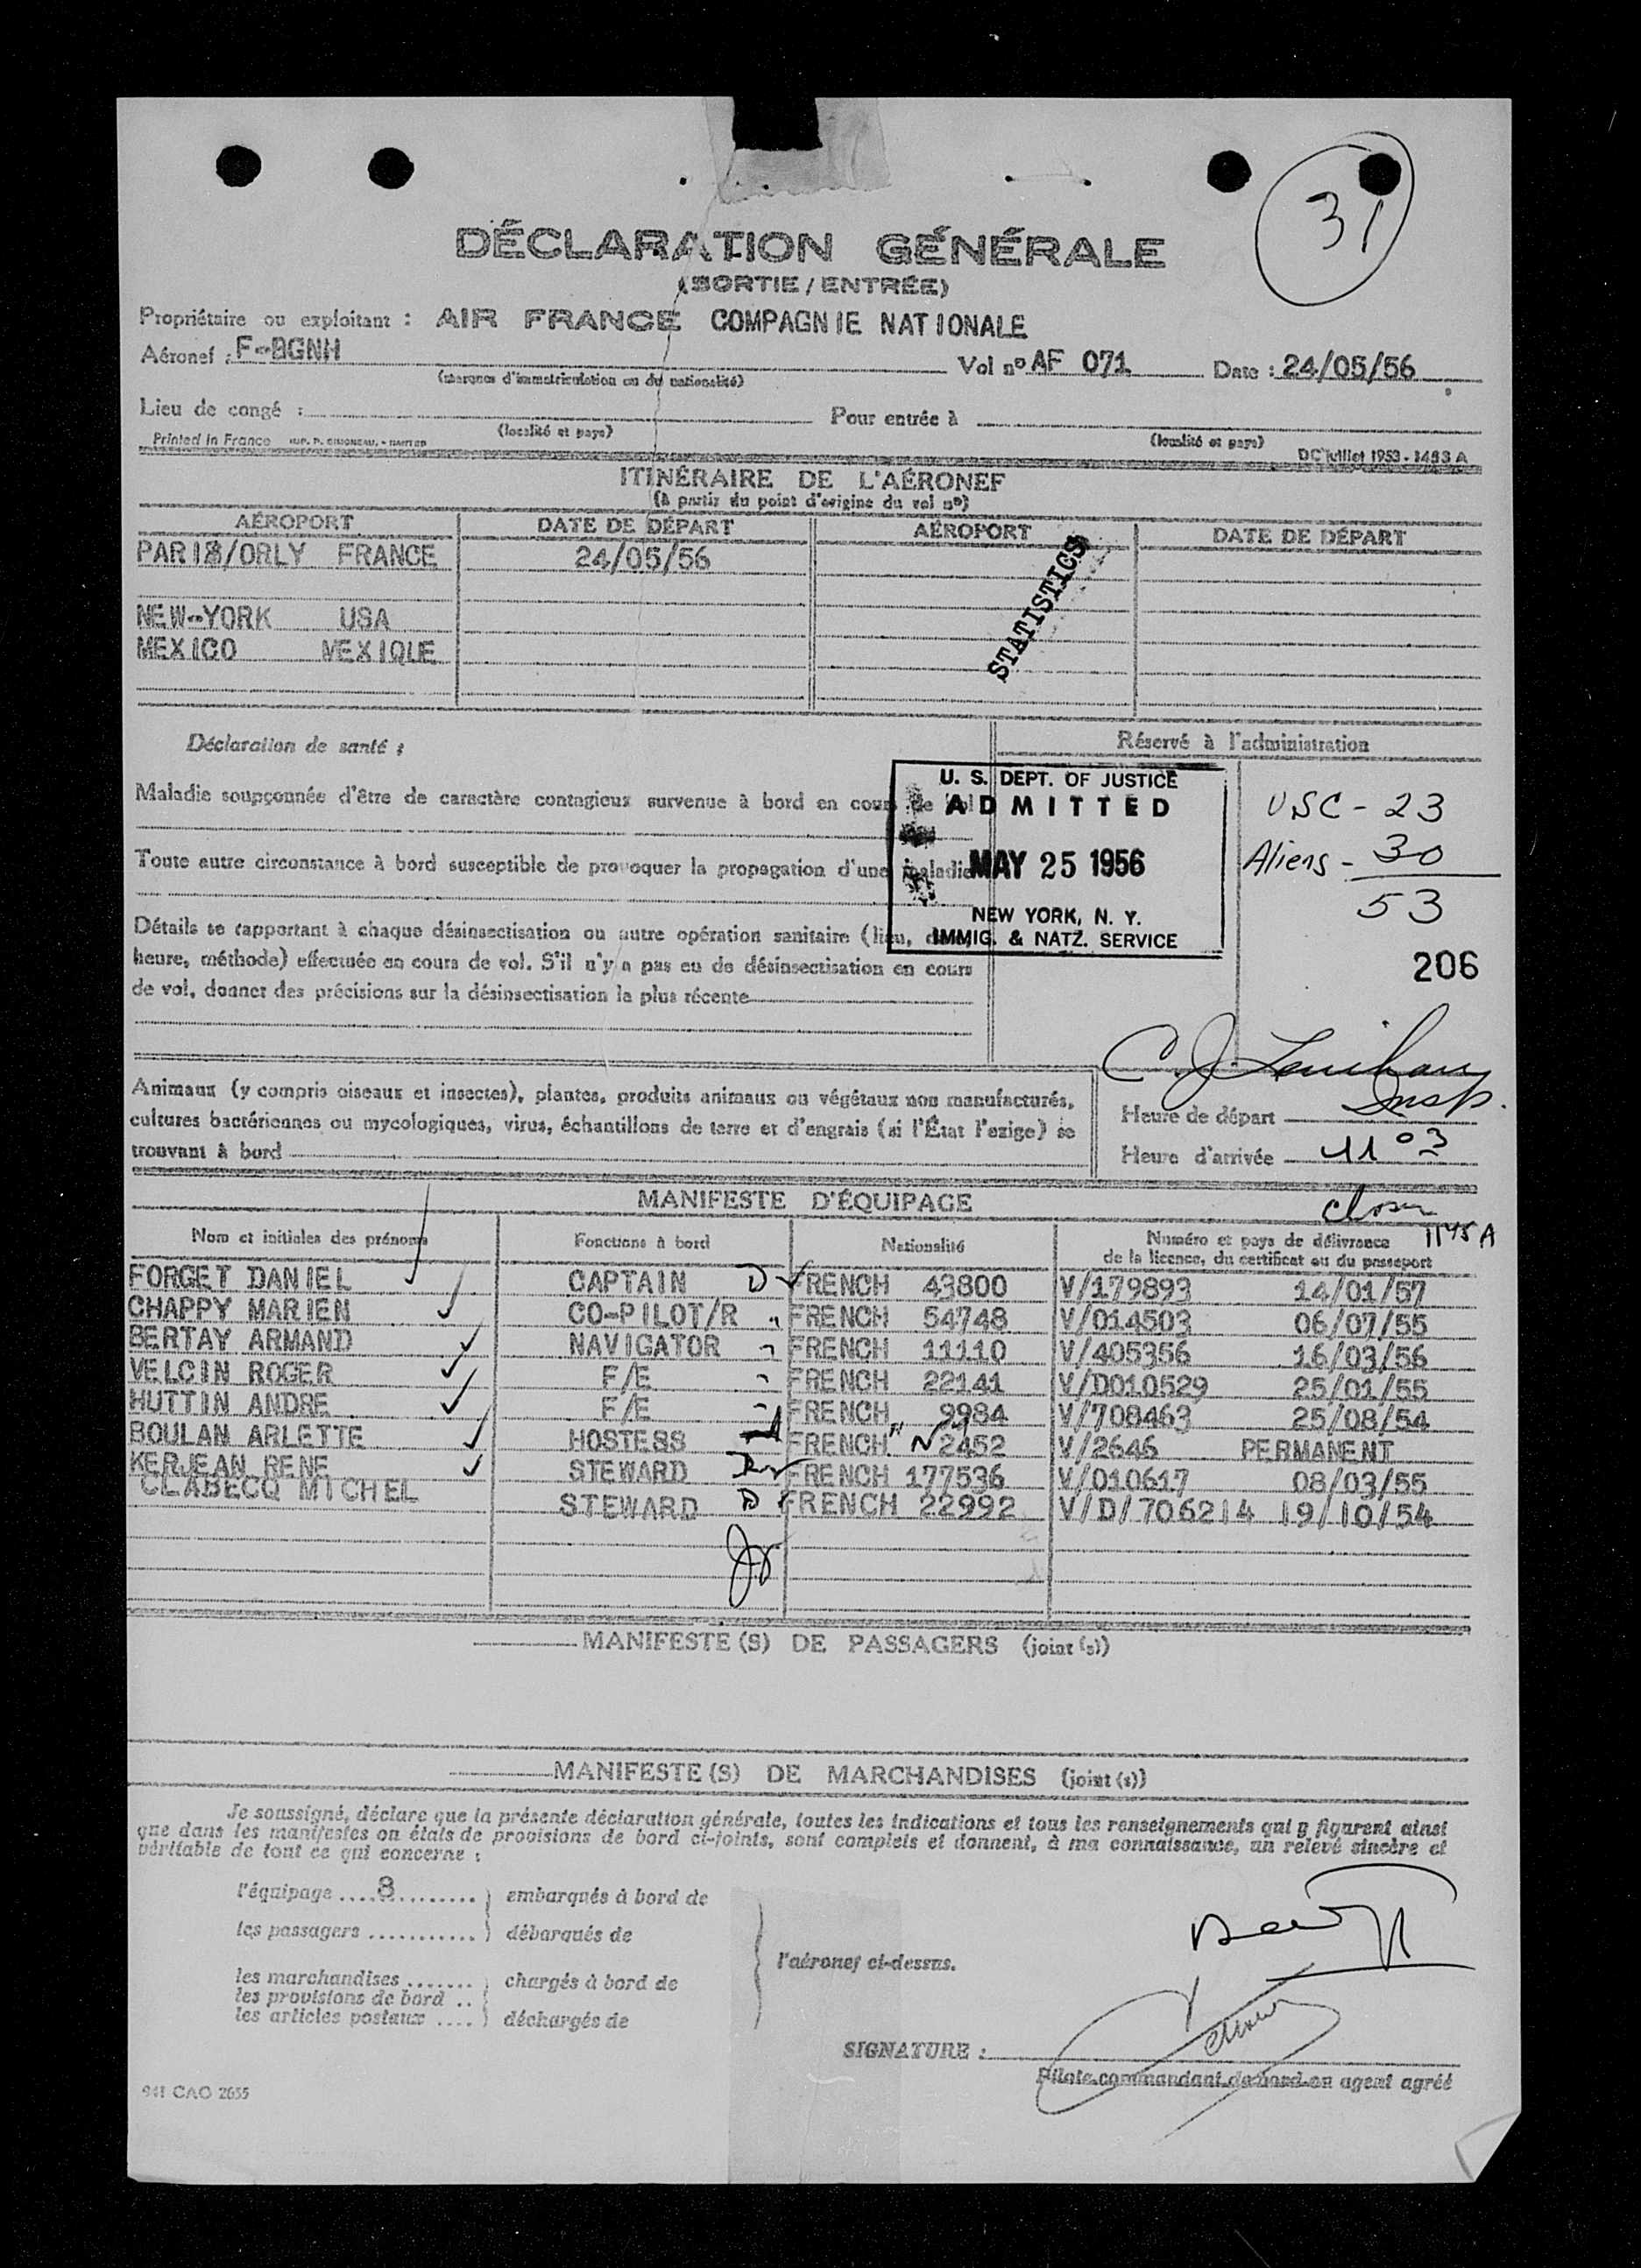 31
DÉCLARATION GÉNÉRALE
(SORTIE / ENTRÉE)
Propriétaire ou exploitant : AIR FRANCE COMPAGNIE NATIONALE
Aéronef : F-BGNH Vol nº AF 071 Date : 24/05/56
(marques d'immatriculation ou du nationalité)
Lieu de congé : Pour entrée à
(localité et pays) (localité et pays)
Printed in France DC juillet 1953 - 1483 A
ITINÉRAIRE DE L'AÉRONEF
(à partir du point d'origine du vol nº)
AÉROPORT DATE DE DÉPART AÉROPORT DATE DE DÉPART
PARIS/ORLY FRANCE 24/05/56
NEW-YORK USA
MEXICO MEXIQUE
STATISTICS
Déclaration de santé :
Réservé à l'administration
Maladie soupçonnée d'être de caractère contagieux survenue à bord en cours de vol
Toute autre circonstance à bord susceptible de provoquer la propagation d'une maladie
Détails se rapportant à chaque désinsectisation ou autre opération sanitaire (lieu, date,
heure, méthode) effectuée en cours de vol. S'il n'y a pas eu de désinsectisation en cours
de vol, donner des précisions sur la désinsectisation la plus récente
U. S. DEPT. OF JUSTICE
ADMITTED
MAY 25 1956
NEW YORK, N. Y.
IMMIG. & NATZ. SERVICE
USC - 23
Aliens - 30
53
206
C. J. Lenihan
Insp.
Animaux (y compris oiseaux et insectes), plantes, produits animaux ou végétaux non manufacturés,
cultures bactériennes ou mycologiques, virus, échantillons de terre et d'engrais (si l'État l'exige) se
trouvant à bord
Heure de départ
Heure d'arrivée 11 03
MANIFESTE D'ÉQUIPAGE
1145 A
Nom et initiales des prénoms Fonctions à bord Nationalité Numéro et pays de délivrance
de la licence, du certificat ou du passeport
FORGET DANIEL CAPTAIN D FRENCH 43800 V/179893 14/01/57
CHAPPY MARIEN CO-PILOT/R " FRENCH 54748 V/014503 06/07/55
BERTAY ARMAND NAVIGATOR FRENCH 11110 V/405356 16/03/56
VELCIN ROGER F/E FRENCH 22141 V/D010529 25/01/55
HUTTIN ANDRE F/E FRENCH 9984 V/708463 25/08/54
BOULAN ARLETTE HOSTESS FRENCH N 2452 V/2646 PERMANENT
KERJEAN RENE STEWARD D FRENCH 177536 V/010617 08/03/55
CLABECQ MICHEL STEWARD D FRENCH 22992 V/D/706214 19/10/54
MANIFESTE (S) DE PASSAGERS (joint (s))
MANIFESTE (S) DE MARCHANDISES (joint (s))
Je soussigné, déclare que la présente déclaration générale, toutes les indications et tous les renseignements qui y figurent ainsi
que dans les manifestes on états de provisions de bord ci-joints, sont complets et donnent, à ma connaissance, un relevé sincère et
véritable de tout ce qui concerne :
l'équipage .... 8 ........... embarqués à bord de
les passagers ........... débarqués de
l'aéronef ci-dessus.
les marchandises ....... chargés à bord de
les provisions de bord ..
les articles postaux .... déchargés de
SIGNATURE :
Pilote commandant de bord ou agent agréé
941 CAO 2655